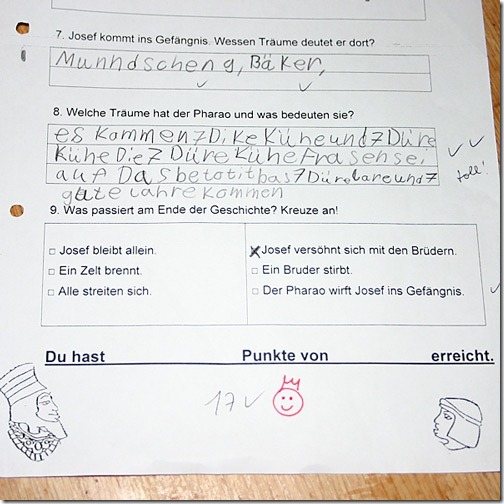 7. Josef kommt ins Gefängnis. Wessen Träume deutet er dort?
Munndscheng, Bäker,
8. Welche Träume hat der Pharao und was bedeuten sie?
es kommen 7 Dike Kühe und 7 Düre
Kühe Die 7 Düre Kühe frasen sei
auf Das betotit bas 7 Düre Jare und 7
toll!
gute Jahre kommen
9. Was passiert am Ende der Geschichte? Kreuze an!
□ Josef bleibt allein.
□ Ein Zelt brennt.
□ Alle streiten sich.
Josef versöhnt sich mit den Brüdern.
□ Ein Bruder stirbt.
□ Der Pharao wirft Josef ins Gefängnis.
Du hast Punkte von erreicht.
17 ✓